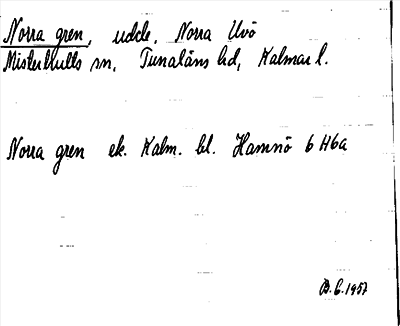 Norra gren, udde, Norra Uvö
Misterhults sn, Tunaläns hd, Kalmar l.
Norra gren ek. Kalm. bl. Hamnö 6 H6a
B.G. 1957